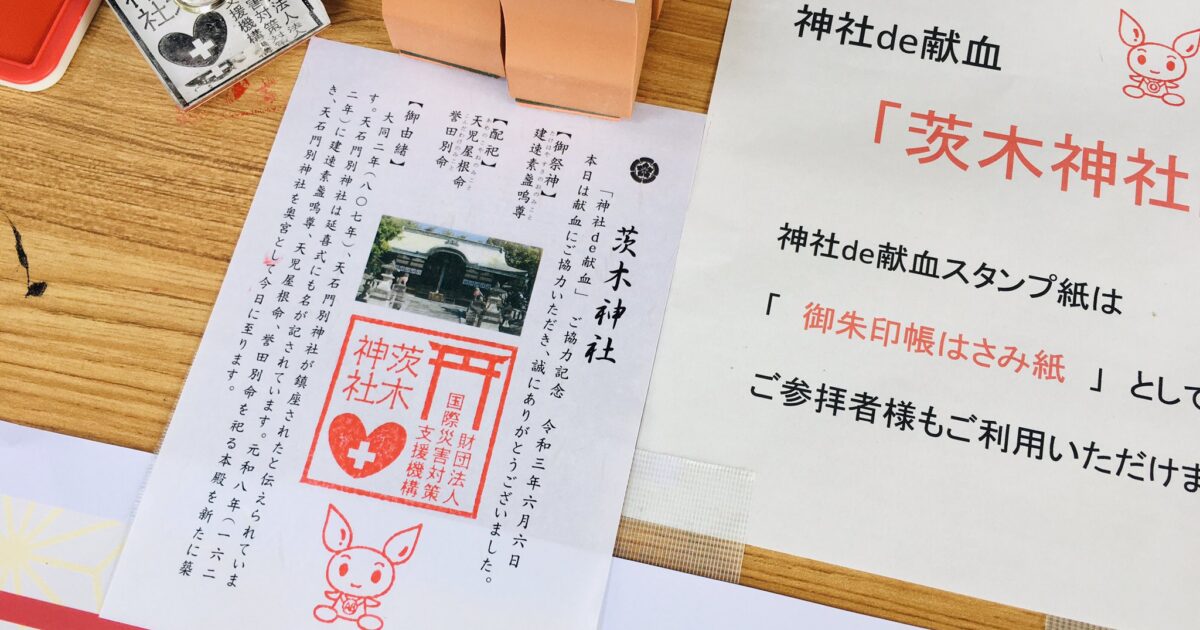 茨木神社
「神社de献血」 ご協力記念 令和三年六月六日
本日は献血にご協力いただき、誠にありがとうございました。
【御祭神】
建速素盞嗚尊
【配祀】
天児屋根命
誉田別命
【御由緒】
大同二年(八〇七年)、天石門別神社が鎮座されたと伝えられていま
す。天石門別神社は延喜式にも名が記されています。元和八年(一六二
二年)に建速素盞嗚尊、天児屋根命、誉田別命を祀る本殿を新たに築
き、天石門別神社を奥宮として今日に至ります。
茨木
神社
財団法人
国際災害対策
支援機構
神社de献血
「茨木神社
神社de献血スタンプ紙は
「 御朱印帳はさみ紙 」 として
ご参拝者様もご利用いただけま
社
法人
害対策
支援機構